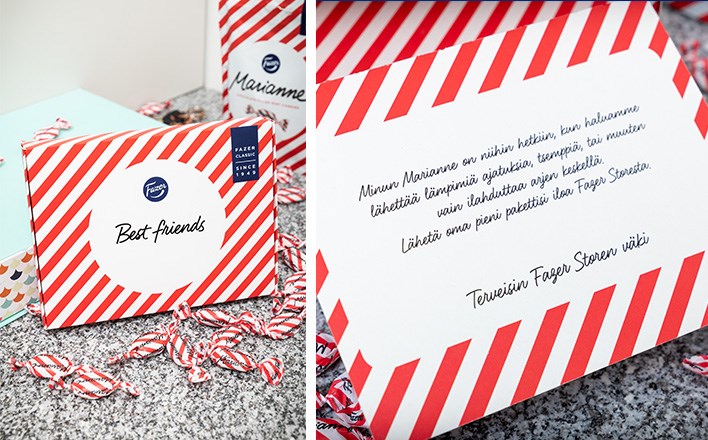 Fazer
Marianne
FAZER
CLASSIC
SINCE
1949
Fazer
Best friends
Minun Marianne on niihin hetkiin, kun haluamme
lähettää lämpimiä ajatuksia, tsemppiä, tai muuten
vain ilahduttaa arjen keskellä.
Lähetä oma pieni pakettisi iloa Fazer Storesta.
Terveisin Fazer Storen väki